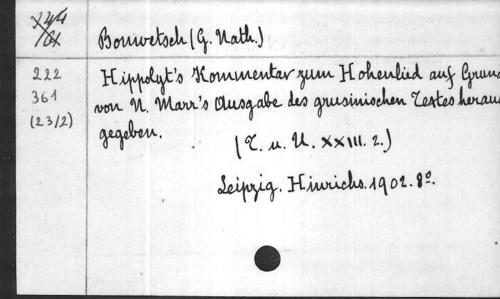 Bonwetsch (G. Nath.)
222
361
(23/2)
Hippolyt's Kommentar zum Hohenlied auf Grund
von N. Marr's Ausgabe des grusinischen Textes heraus
gegeben.
(T. u. U. XXIII. 2.)
Leipzig. Hinrichs. 1902. 8º.